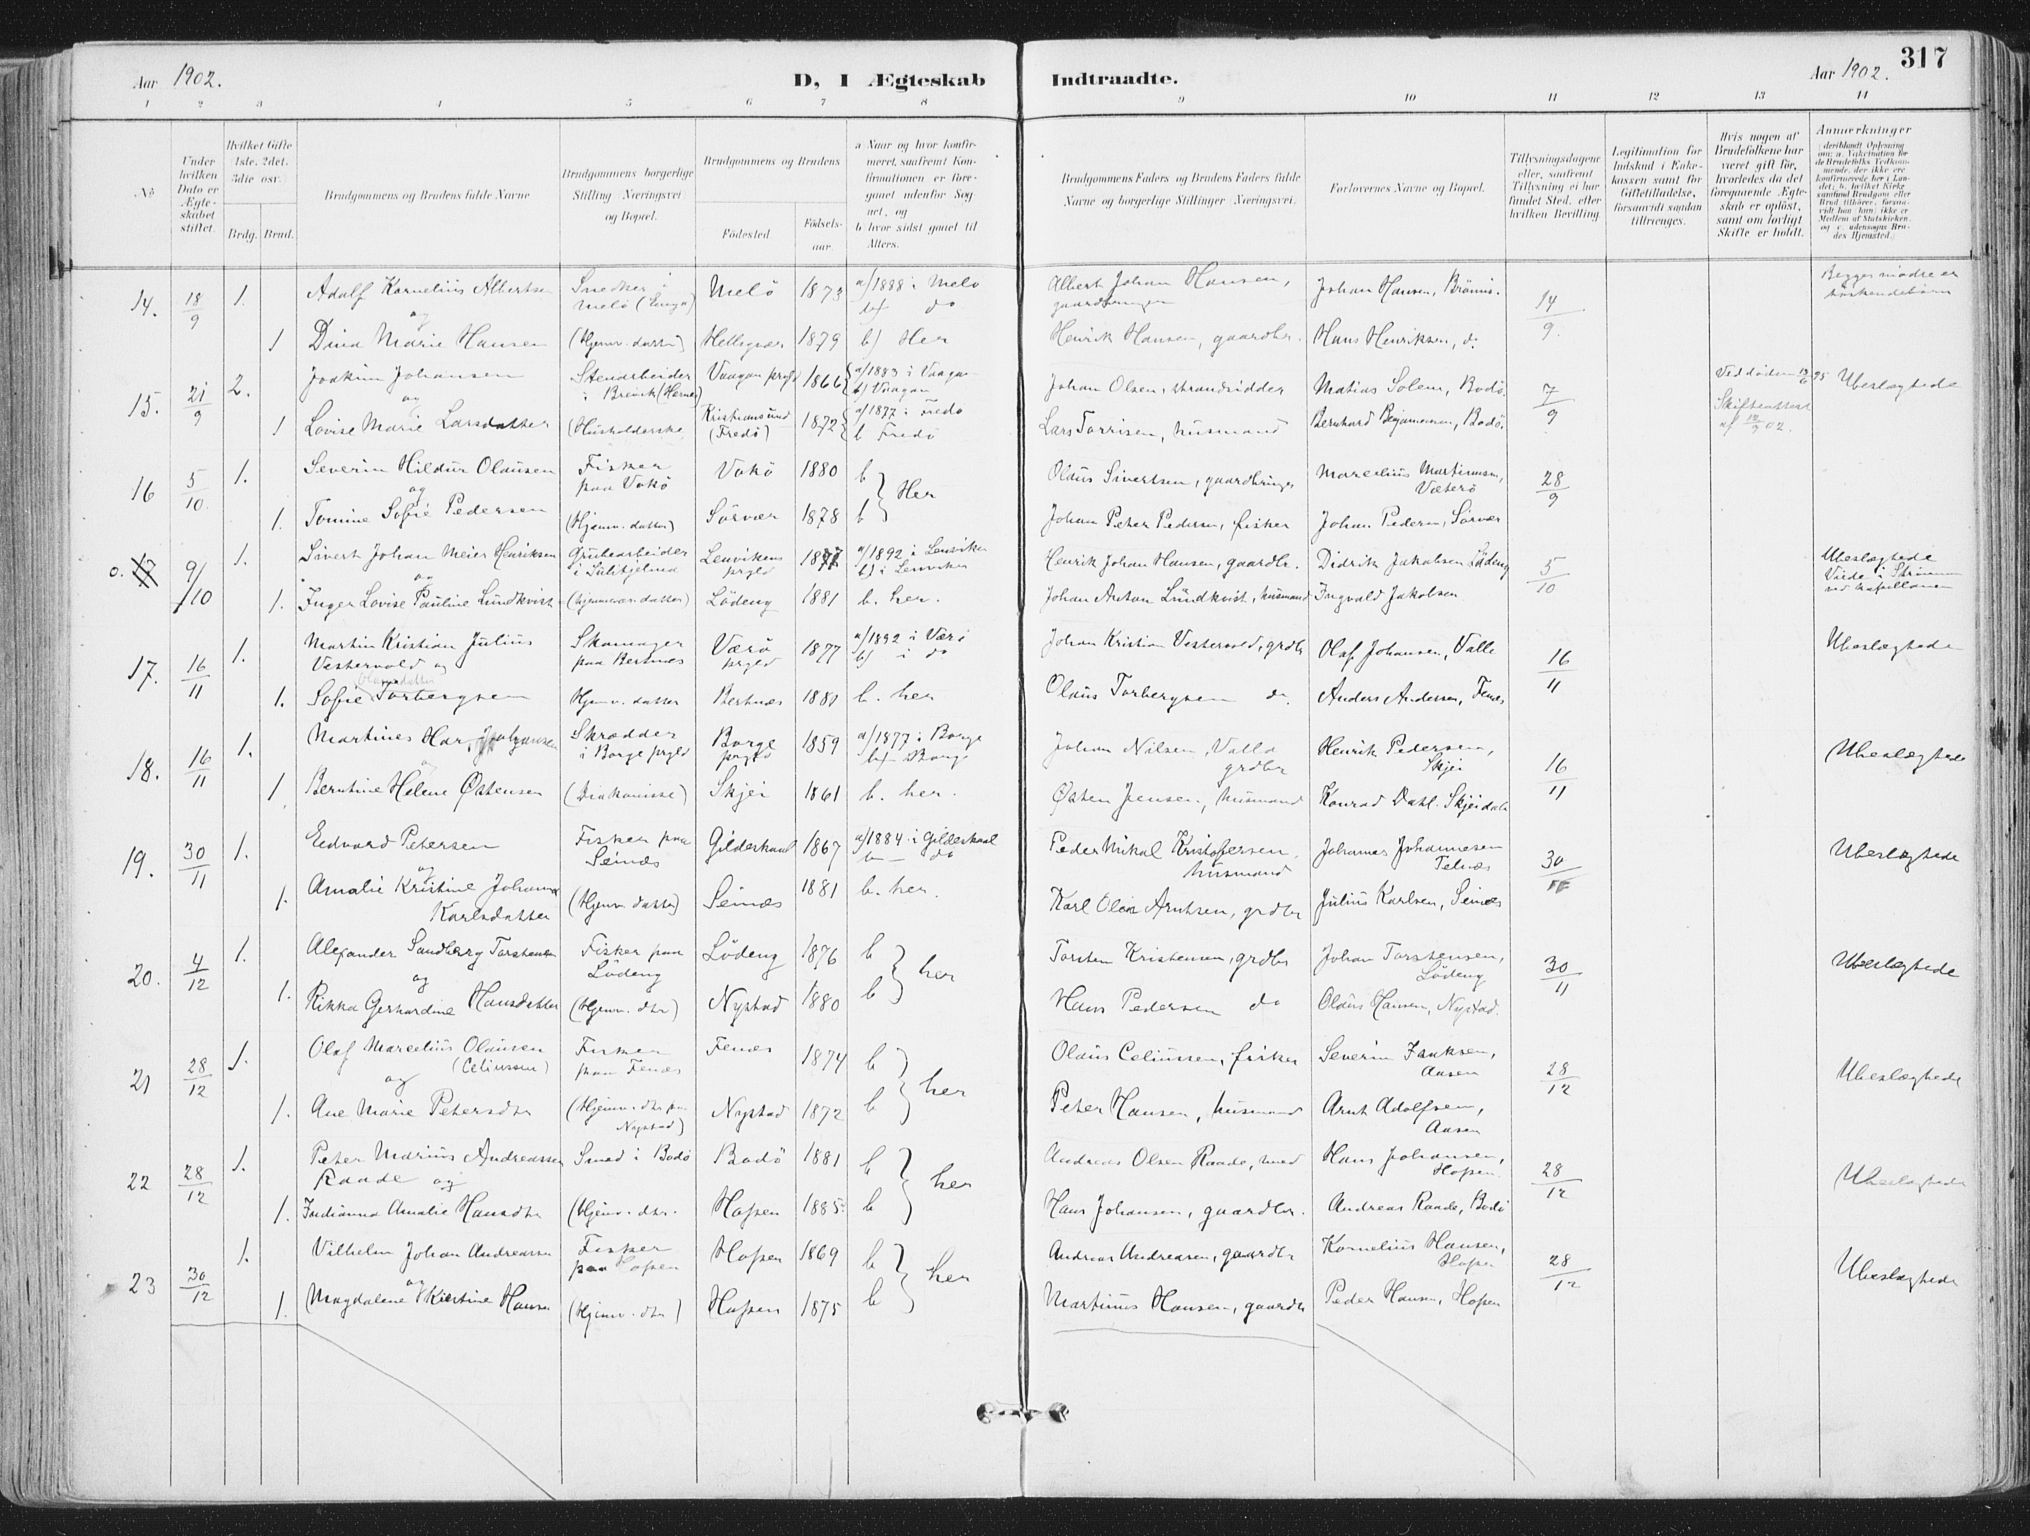 Aar 1902.
D, I Ægteskab Indtraadte.
Aar 1902. 317
1 2 3 4 5 6 7 8 9 10 11 12 13 14
No
Under hvilken Dato er Ægteskabet stiftet.
Hvilket Gifte 1ste, 2det, 3die osv.
Brdg. Brud.
Brudgommens og Brudens fulde Navne
Brudgommens borgerlige Stilling Næringsvei og Bopæl.
Brudgommens og Brudens
Födested.
Födselsaar.
a Naar og hvor konfirmeret, saafremt Konfirmationen er foregaaet udenfor Sognet, og
b hvor sidst gaaet til Alters.
Brudgommens Faders og Brudens Faders fulde Navne og borgerlige Stillinger Næringsvei.
Forlovernes Navne og Bopæl.
Tillysningsdagene eller, saafremt Tillysning ei har fundet Sted, efter hvilken Bevilling.
Legitimation for Indskud i Enkekassen samt for Giftetilladelse, forsaavidt saadan tiltrænges.
Hvis nogen af Brudefolkene har været gift för, hvorledes da det foregaaende Ægteskab er oplöst, samt om lovligt Skifte er holdt.
Anmærkninger
14. 18/9 1. Adolf Kornelius Albertsen Snedker i Melö Melö 1873 a/1888 i Melö b/ do Albert Johan Hansen, Johan Hansen, 14/9. Begges mødre er søskendebørn
og
1 Dina Marie Hansen (Hjemv. datter) Hellegvær 1879 b) Her Henrik Hansen, gaardbr. Hans Henriksen, do
15. 21/9 2. Joakim Johansen Stenarbeider i Brevik Vaagan prgld 1866 a/1883 i Vaagan b) Vaagan Johan Olsen, strandsidder Matias Solem, Bodö. 7/9 Ved döden Ubeslægtede
og
1 Lovise Marie Larsdatter (Husholderske Kristiansund (Fredö) 1872 a/1877 i Fredö b Fredö Lars Torrisen, husmand Bernhard Benjaminsen, Bodö. Skifteattest af
16 5/10 1. Severin Hildur Olausen Fisker paa Vokö Vokö 1880 b Her Olaus Sivertsen, gaardbruger Marcelius Martinusen, 28/9
og
1. Tomine Sofie Pedersen (Hjemv. datter) Sörvær 1878 b Johan Peter Pedersen, fisker Johan Pedersen, Sörvær
0. 17 9/10 1. Sivert Johan Meier Henriksen Grubearbeider i Sulitjelma Lenvikens prgld 1877 a/1892 i Lenviken b) i Lenviken Henrik Johan Hansen, gaardbr. Didrik Jakobsen Lödeng 5/10 Ubeslægtede Viede i
og
1. Inger Lovise Pauline Lundkvist (hjemmevær. datter) Lödeng 1881 b. her. Johan Anton Lundkvist, husmand Ingvald Jakobsen
17. 16/11 1. Martin Kristian Julius Vestervold og Skomager paa Bertnæs Værö prgld 1877 a/1892 i Værö b) i do Johan Kristian Vestervold, grdbr Olaf Johansen, Valle 16/11 Ubeslægtede
Olausdatter
1. Sofie Torbergsen Hjemv. datter Bertnæs 1881 b. her Olaus Torbergsen do. Anders Andersen, Fenes
18. 16/11 1. Martines Johansen Skrædder i Borge prgld Borge prgld 1859 a/1877 i Borge b/ - Borge Johan Nilsen, Valla grdbr Henrik Pedersen, Skjei 16/11 Ubeslægtede
og
1 Berntine Helene Østensen (Diakonisse) Skjei 1861 b. her. Østen Jensen, husmand Konrad Dahl. Skjeidalen
19. 30/11 1. Edvard Petersen Fisker paa Seinæs Gildeskaal 1867 a/1884 i Gildeskaal b - do Peder Mikal Kristofersen, husmand Johannes Johannesen 30/11 Ubeslægtede
og
1. Amalie Kristine Johanna Karlsdatter (Hjemv. datter) Seinæs 1881 b. her. Karl Olai Arntsen, grdbr Julius Karlsen, Seinæs
20. 4/12 1. Alexander Sandberg Torstensen Fisker paa Lödeng Lödeng 1876 b her Torsten Kristensen, grdbr Johan Torstensen, Lödeng 30/11 Ubeslægtede
og
1. Rikka Gerhardine Hansdatter (Hjemv. dtr) Nystad 1880 b Hans Pedersen do Olaus Hansen, Nystad.
21 28/12 1. Olaf Marcelius Olausen (Celiussen) Fisker paa Fenes Fenes 1874 b her Olaus Celiussen, fisker Severin Isaksen, Aasen 28/12 Ubeslægtede
og
1. Ane Marie Petersdtr (Hjemv. dtr paa Nystad) Nystad 1872 b Peter Hansen, husmand Arnt Adolfsen, Aasen
22 28/12 1. Peter Marius Andreassen Raade og Smed i Bodö Bodö 1881 b her Andreas Olsen Raade, smed Hans Johansen, Hopen 28/12 Ubeslægtede
1. Ferdianna Amalie Hansdtr (Hjemv. dtr. Hopen 1885 b Hans Johansen, gaardbr. Andreas Raade, Bodö
23 30/12 1. Vilhelm Johan Andreassen Fisker paa Hopen Hopen 1869 b her Andreas Andreasen, gaardbr Kornelius Hansen, Hopen 28/12 Ubeslægtede
og
1. Magdalene Kierstine Hansen (Hjemv. dtr) Hopen 1875 b Martinus Hansen, gaardbr Peder Hansen, Hopen